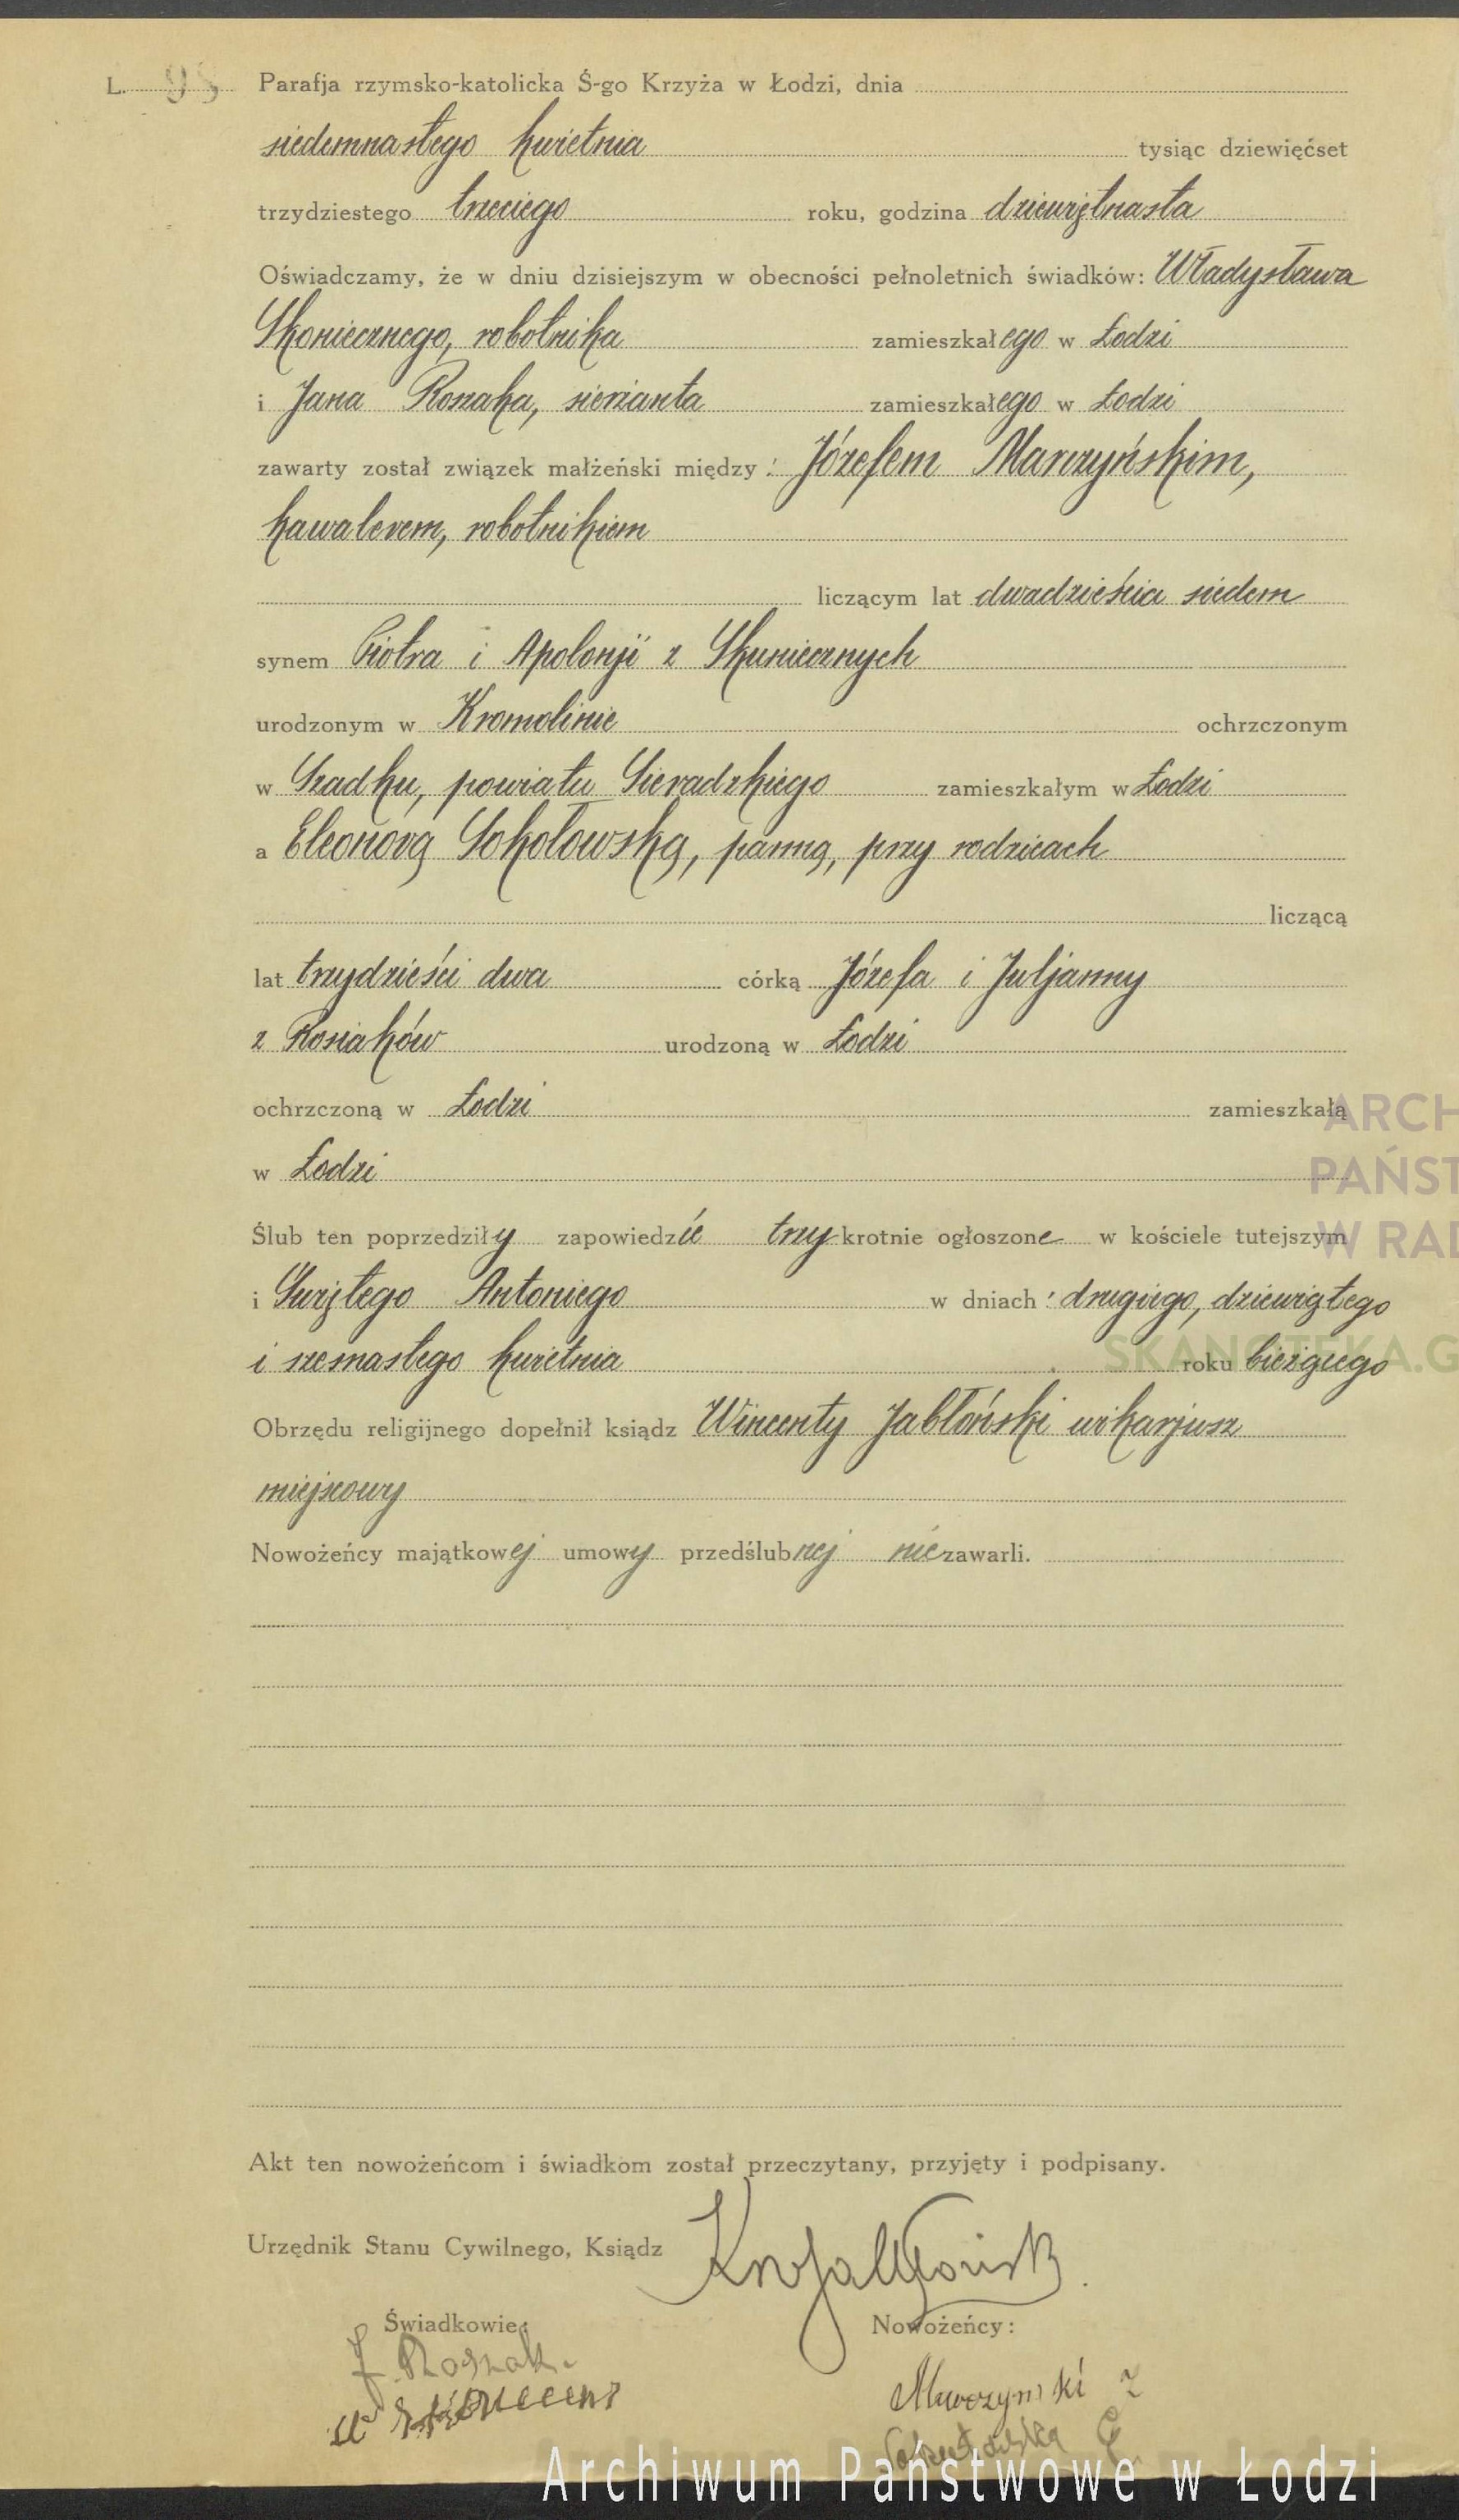 L. 93 Parafja rzymsko-katolicka Ś-go Krzyża w Łodzi, dnia
siedemnastego kwietnia tysiąc dziewięćset
trzydziestego trzeciego roku, godzina dziewiętnasta
Oświadczamy, że w dniu dzisiejszym w obecności pełnoletnich świadków: Władysława
Skoniecznego, robotnika zamieszkałego w Łodzi
i Jana Roszaka, sierżanta zamieszkałego w Łodzi
zawarty został związek małżeński między: Józefem Marczyńskim,
kawalerem, robotnikiem
liczącym lat dwadzieścia siedem
synem Piotra i Apolonji z Skuniecznych
urodzonym w Kromolinie ochrzczonym
w Szadku, powiatu Sieradzkiego zamieszkałym w Łodzi
a Eleonorą Sokołowską, panną, przy rodzicach
liczącą
lat trzydzieści dwa córką Józefa i Juljanny
z Rosiaków urodzoną w Łodzi
ochrzczoną w Łodzi zamieszkałą
w Łodzi
Ślub ten poprzedziły zapowiedzie trzykrotnie ogłoszone w kościele tutejszym
i Świętego Antoniego w dniach: drugiego, dziewiątego
i szesnastego kwietnia roku bieżącego
Obrzędu religijnego dopełnił ksiądz Wincenty Jabłoński wikarjusz
miejscowy
Nowożeńcy majątkowej umowy przedślubnej nie zawarli.
Akt ten nowożeńcom i świadkom został przeczytany, przyjęty i podpisany.
Urzędnik Stanu Cywilnego, Ksiądz
Świadkowie: Nowożeńcy:
J. Roszak. Marczynski
Sokołowska
ARCH
PAŃST
W RAD
SKANOTEKA.G
Archiwum Państwowe w Łodzi